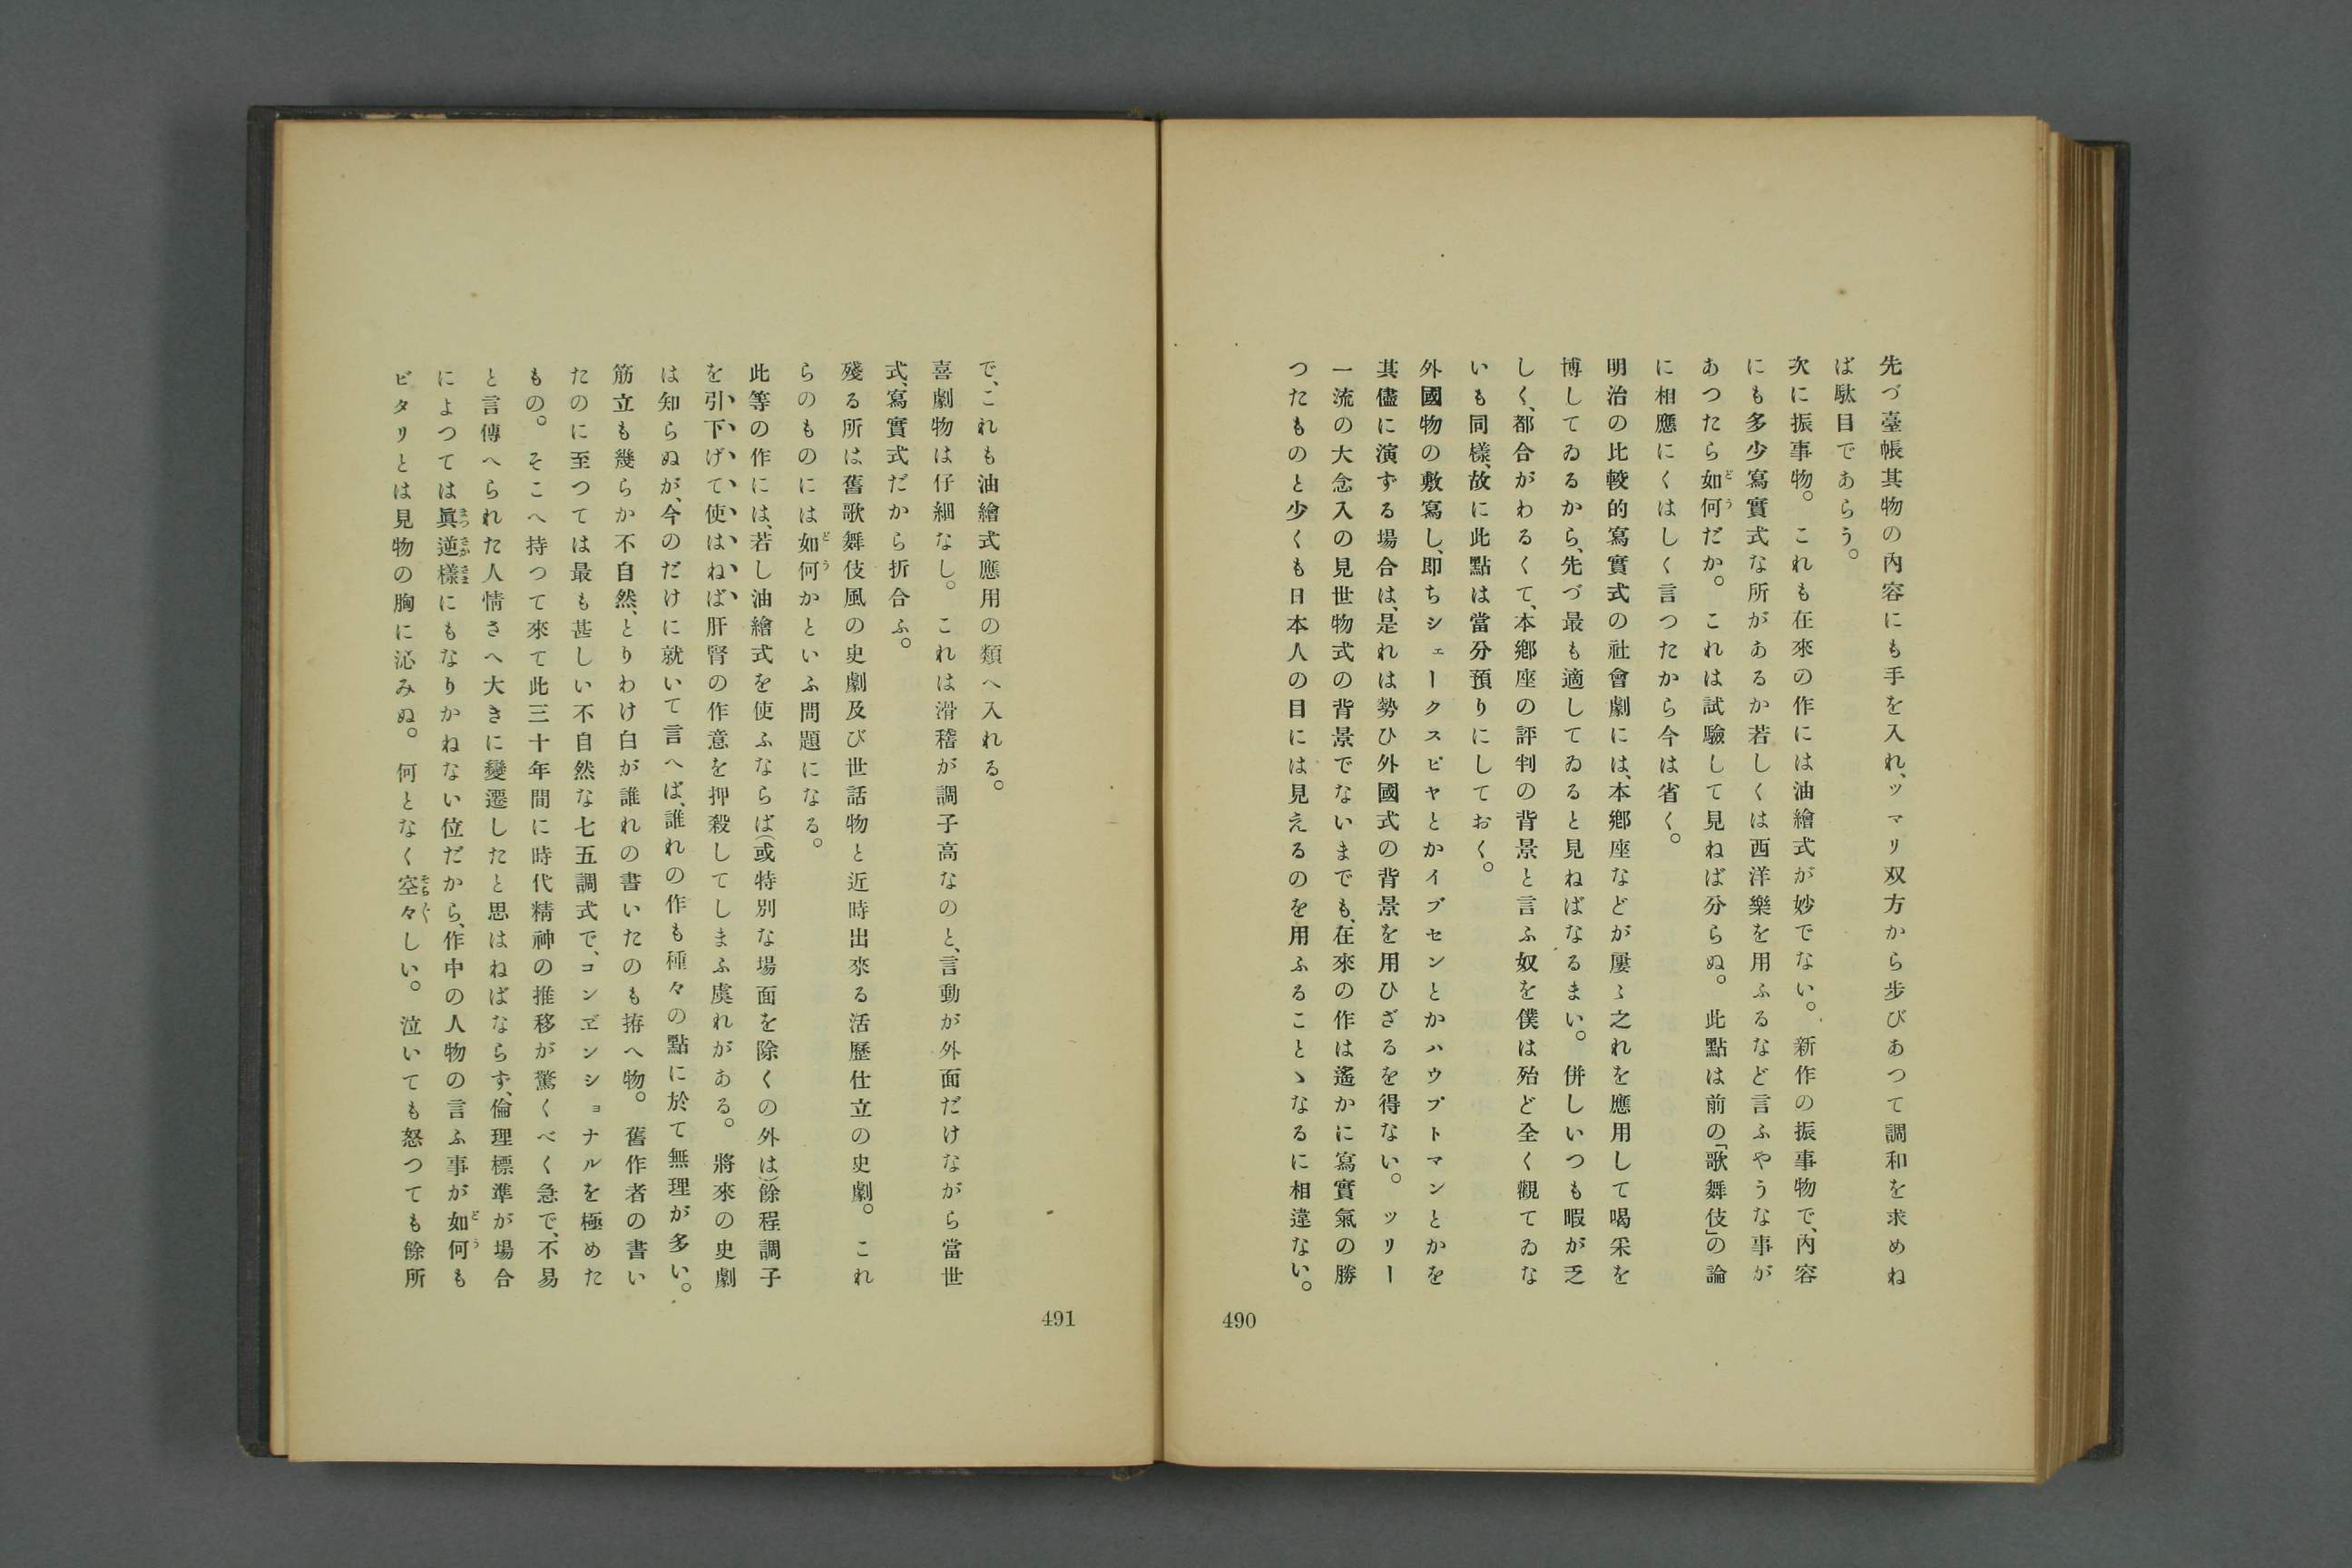 先づ臺帳其物の內容にも手を入れ、ツマリ双方から步びあつて調和を求めね
ば駄目であらう。
次に振事物。これも在來の作には油繪式が妙でない。新作の振事物で、內容
にも多少寫實式な所があるか若しくは西洋樂を用ふるなど言ふやうな事が
あつたら如何だか。これは試驗して見ねば分らぬ。此點は前の「歌舞伎」の論
に相應にくはしく言つたから今は省く。
明治の比較的寫實式の社會劇には、本鄕座などが屢〻之れを應用して喝采を
博してゐるから、先づ最も適してゐると見ねばなるまい。併しいつも暇が乏
しく、都合がわるくて、本鄕座の評判の背景と言ふ奴を僕は殆ど全く觀てゐな
いも同樣、故に此點は當分預りにしておく。
外國物の敷寫し、卽ちシェークスピヤとかイブセンとかハウプトマンとかを
其儘に演ずる場合は、是れは勢ひ外國式の背景を用ひざるを得ない。ツリー
一流の大念入の見世物式の背景でないまでも、在來の作は遙かに寫實氣の勝
つたものと少くも日本人の目には見えるのを用ふることゝなるに相違ない。
490
で、これも油繪式應用の類へ入れる。
喜劇物は仔細なし。これは滑稽が調子高なのと、言動が外面だけながら當世
式、寫實式だから折合ふ。
殘る所は舊歌舞伎風の史劇及び世話物と近時出來る活歷仕立の史劇。これ
らのものには如何かといふ問題になる。
此等の作には、若し油繪式を使ふならば(或特別な場面を除くの外は)餘程調子
を引下げて使はねば肝腎の作意を押殺してしまふ虞れがある。將來の史劇
は知らぬが、今のだけに就いて言へば、誰れの作も種々の點に於て無理が多い。
筋立も幾らか不自然、とりわけ白が誰れの書いたのも拵へ物。舊作者の書い
たのに至つては最も甚しい不自然な七五調式で、コンヹンショナルを極めた
もの。そこへ持つて來て此三十年間に時代精神の推移が驚くべく急で、不易
と言傳へられた人情さへ大きに變遷したと思はねばならず、倫理標準が場合
によつては眞逆樣にもなりかねない位だから、作中の人物の言ふ事が如何も
ピタリとは見物の胸に沁みぬ。何となく空々しい。泣いても怒つても餘所
491